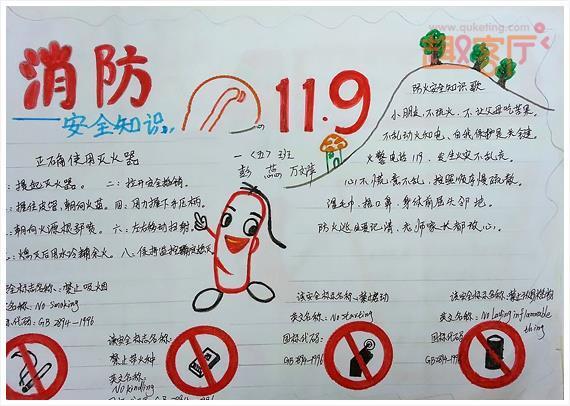 www.quketing.com
趣客厅
消防
11.9
——安全知识
防火安全知识歌
小朋友,不玩火,不让父母吃苦果。
不乱动火和电,自我保护是关键
火警电话119,发生火灾不乱充
心不慌意不乱,按照顺序慢疏散。
湿毛巾,捂口鼻,身体前屈头邻地。
防火逃生要记清,老师家长都放心。
正确使用灭火器
一〈五〉班
彭蕊
:提起灭火器。 二:拉开安全插销。
:握住皮管,朝向火苗。 四:用力握下手压柄。
:朝向火源根部喷。 六:左右移动扫射。
:熄灭后用水冷却余火。 八:保持监控确定熄灭。
安全标志名称:禁止吸烟
文名称:No smoking
标代码:GB 2894-1996
该安全标志名称:
禁止带火种
英文名称:
No kindling
该安全标志名称:禁止启动
英文名称:No starting
国标代码:
GB 2894-1996
该安全标志名称:禁止放易燃物
英文名称:No laying inflammable
thing
国标代码:
GB 2894-1996